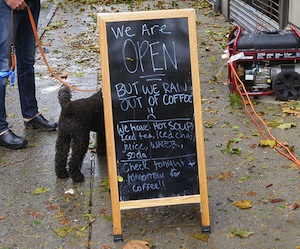 We Are
OPEN
BUT WE RAN
OUT OF COFFEE
We have HOT SOUP,
Iced tea, Iced chai
JUICE, WATER,
soda
Check tonight +
tomorrow for
coffee!!